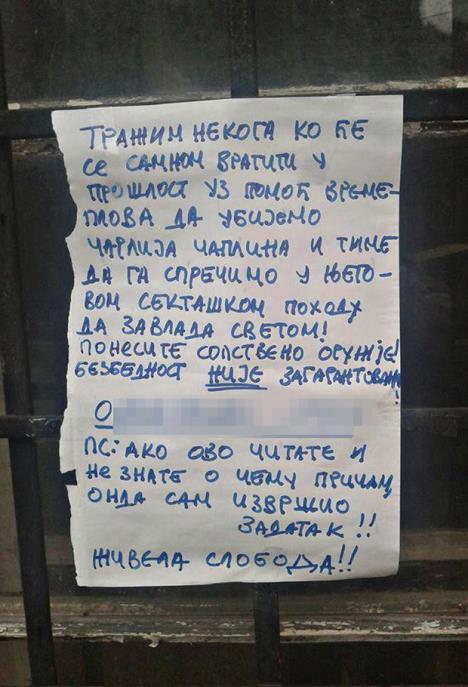 ТРАЖИМ НЕКОГА КО ЋЕ
СЕ САМНОМ ВРАТИТИ У
ПРОШЛОСТ УЗ ПОМОЋ ВРЕМЕ-
ПЛОВА ДА УБИЈЕМО
ЧАРЛИЈА ЧАПЛИНА И ТИМЕ
ДА ГА СПРЕЧИМО У ЊЕГО-
ВОМ СЕКТАШКОМ ПОХОДУ
ДА ЗАВЛАДА СВЕТОМ!
ПОНЕСИТЕ СОПСТВЕНО ОРУЖЈЕ!
БЕЗБЕДНОСТ НИЈЕ ЗАГАРАНТОВАНА!
О
ПС: АКО ОВО ЧИТАТЕ И
НЕ ЗНАТЕ О ЧЕМУ ПРИЧАМ
ОНДА САМ ИЗВРШИО
ЗАДАТАК!!
ЖИВЕЛА СЛОБОДА!!